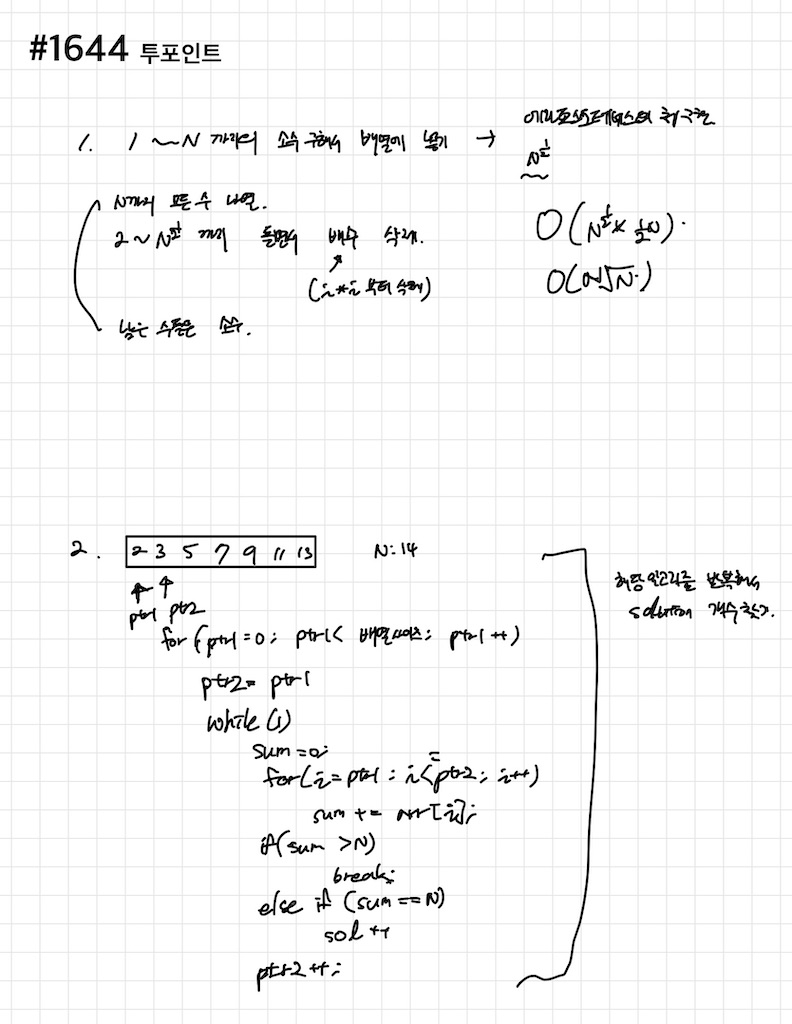 #1644 투포인트
1. 1 ~ N 까지의 소수 구해서 배열에 넣기 → 에라토스테네스의 체 구현
N^½
N까지 모든 수 나열.
2 ~ N^½ 까지 돌면서 배수 삭제.
(i*i 부터 삭제)
남은 수들은 소수.
O(N^½ * ½N).
O(N√N.)
2. 2 3 5 7 9 11 13 N: 14
ptr1 ptr2
해당 알고리즘 반복해서
solution 개수 찾기.
for (ptr1 = 0; ptr1 < 배열사이즈; ptr1 ++)
ptr2 = ptr1
while (1)
sum = 0;
for (i = ptr1 ; i <= ptr2; i++)
sum += arr[i];
if (sum > N)
break;
else if (sum == N)
sol ++
ptr2 ++;